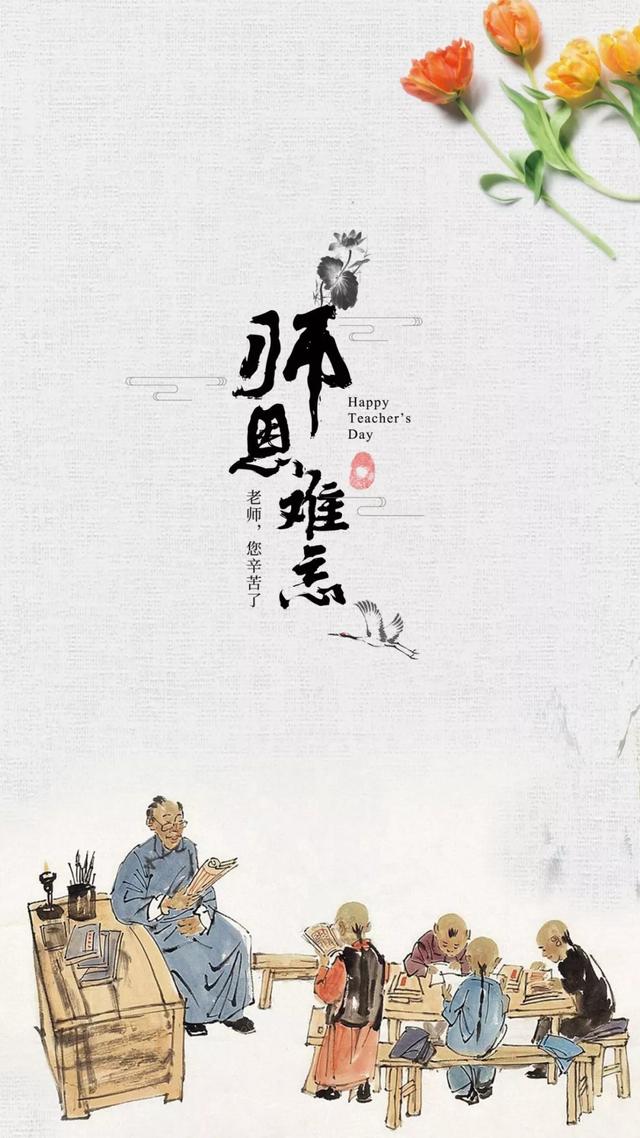 师恩难忘
Happy
Teacher's
Day
老师，您辛苦了